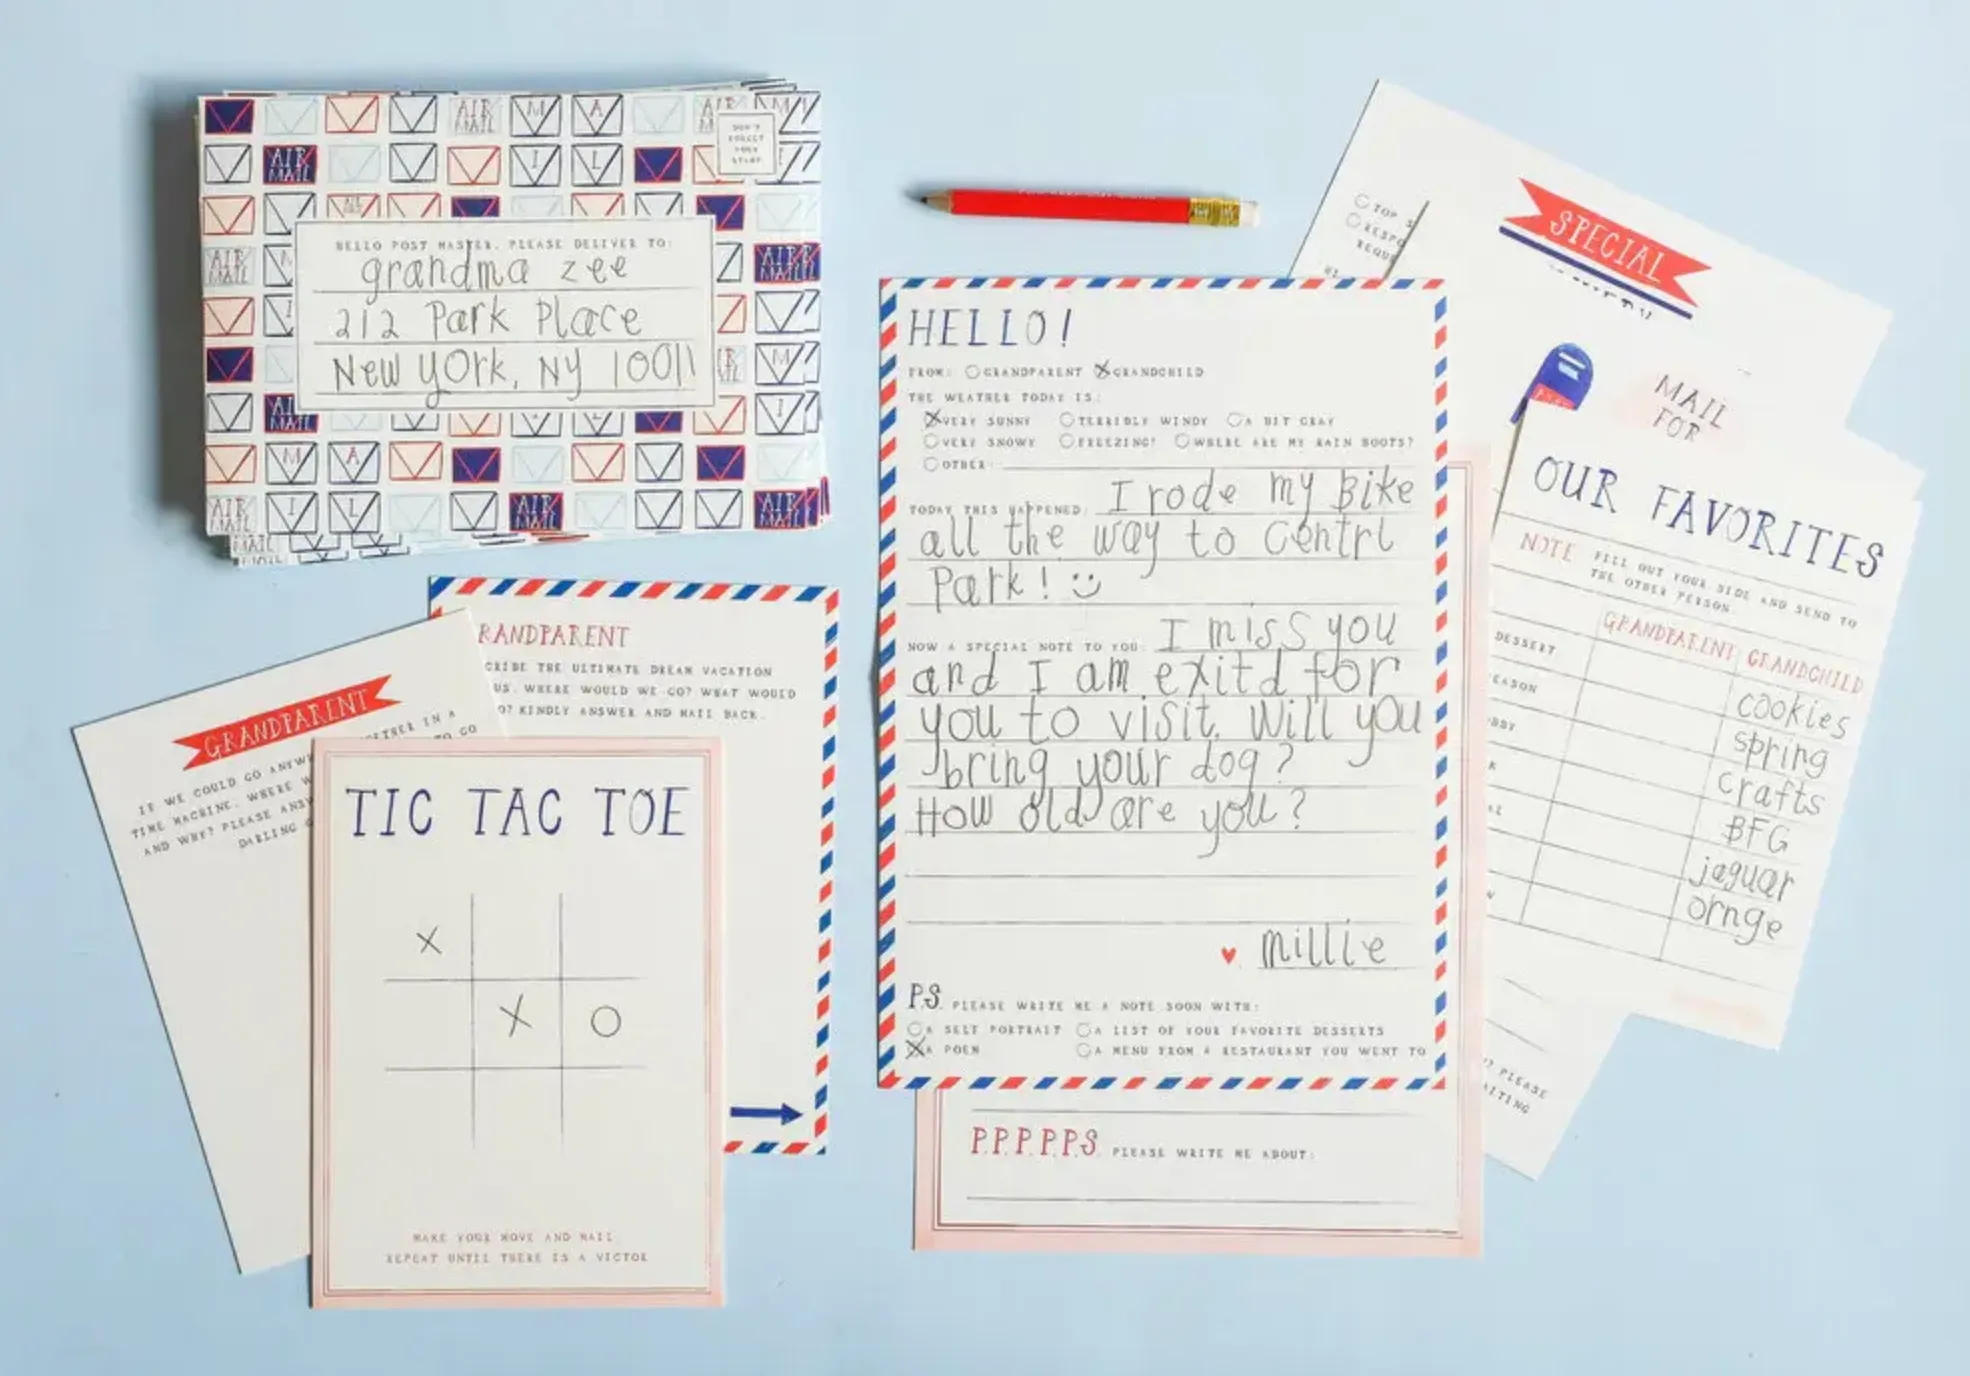 DON'T
FORGET
YOUR
STAMP
HELLO POST MASTER, PLEASE DELIVER TO:
grandma zee
212 Park Place
New york, NY 10011
GRANDPARENT
IF WE COULD GO ANYW
TIME MACHINE, WHERE W
AND WHY? PLEASE ANSW
DARLING G
TO GO
RANDPARENT
CRIBE THE ULTIMATE DREAM VACATION
US. WHERE WOULD WE GO? WHAT WOULD
O? KINDLY ANSWER AND MAIL BACK.
TIC TAC TOE
X
X O
MAKE YOUR MOVE AND MAIL
REPEAT UNTIL THERE IS A VICTOR
HELLO!
FROM: GRANDPARENT GRANDCHILD
THE WEATHER TODAY IS:
VERY SUNNY TERRIBLY WINDY A BIT GRAY
VERY SNOWY FREEZING! WHERE ARE MY RAIN BOOTS?
OTHER:
TODAY THIS HAPPENED: I rode my bike
all the way to Centrl
Park!
NOW A SPECIAL NOTE TO YOU: I miss you
and I am exitd for
you to visit. Will you
bring your dog?
How old are you?
millie
P.S. PLEASE WRITE ME A NOTE SOON WITH:
A SELF PORTRAIT A LIST OF YOUR FAVORITE DESSERTS
A POEM A MENU FROM A RESTAURANT YOU WENT TO
P.P.P.P.P.S. PLEASE WRITE ME ABOUT:
TOP S
RESPO
REQUE
SPECIAL
MAIL
FOR
OUR FAVORITES
NOTE FILL OUT YOUR SIDE AND SEND TO
THE OTHER PERSON
GRANDPARENT GRANDCHILD
DESSERT cookies
EASON spring
OBBY crafts
K BFG
AL jaguar
W ornge
? PLEASE
AITING